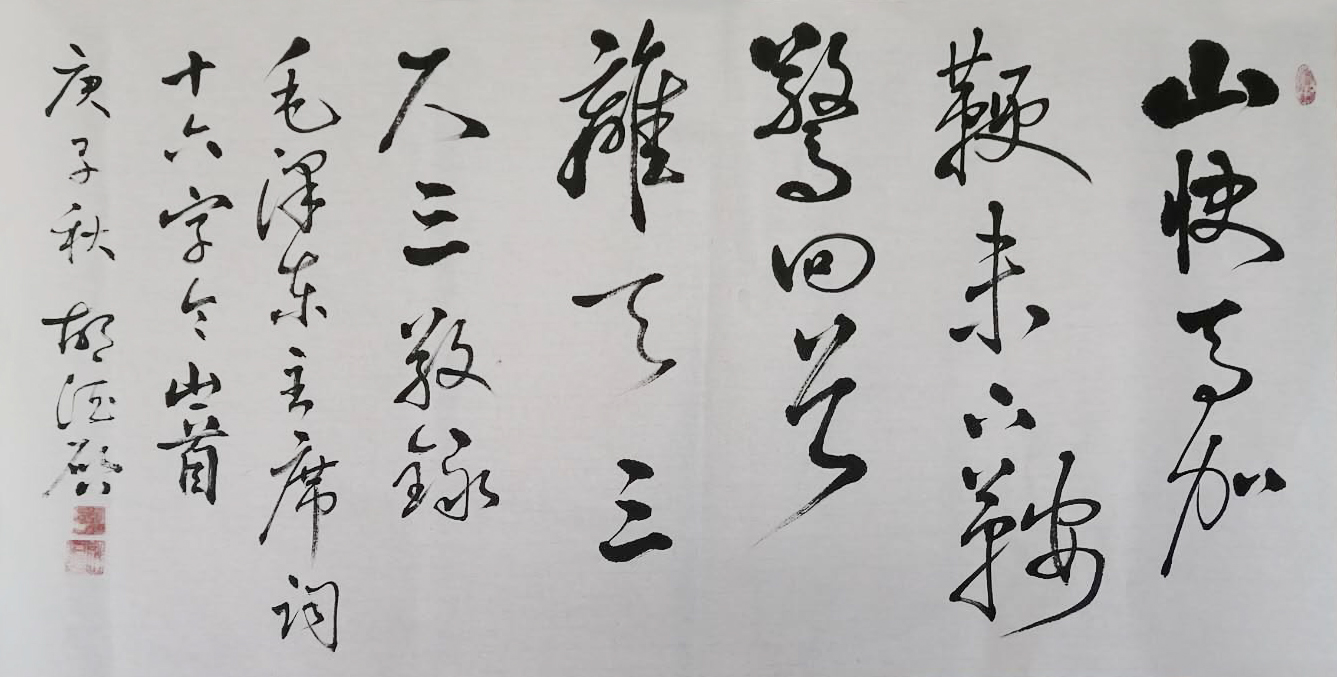 山快马加
鞭未下鞍
惊回首
离天三
尺三敬录
毛泽东主席词
十六字令山首
庚子秋胡